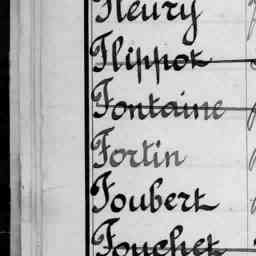 Fleury
Flippot
Fontaine
Fortin
Foubert
Fouchet